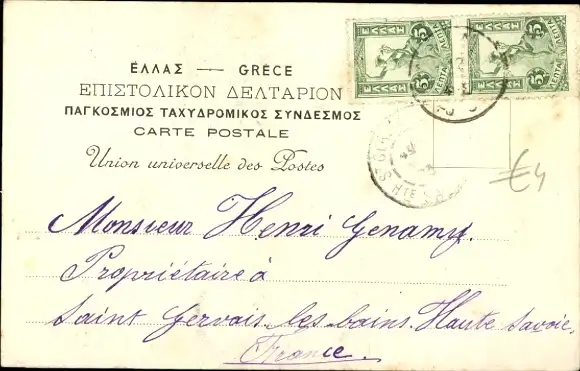 ΕΛΛΑΣ 5 ΛΕΠΤΑ 5
ΕΛΛΑΣ 5 ΛΕΠΤΑ 5
ΕΛΛΑΣ — GRÈCE
ΕΠΙΣΤΟΛΙΚΟΝ ΔΕΛΤΑΡΙΟΝ
ΠΑΓΚΟΣΜΙΟΣ ΤΑΧΥΔΡΟΜΙΚΟΣ ΣΥΝΔΕΣΜΟΣ
CARTE POSTALE
Union universelle des Postes
€4
Monsieur Henri Genamy.
Propriétaire à
Saint Gervais les bains. Haute Savoie.
France.